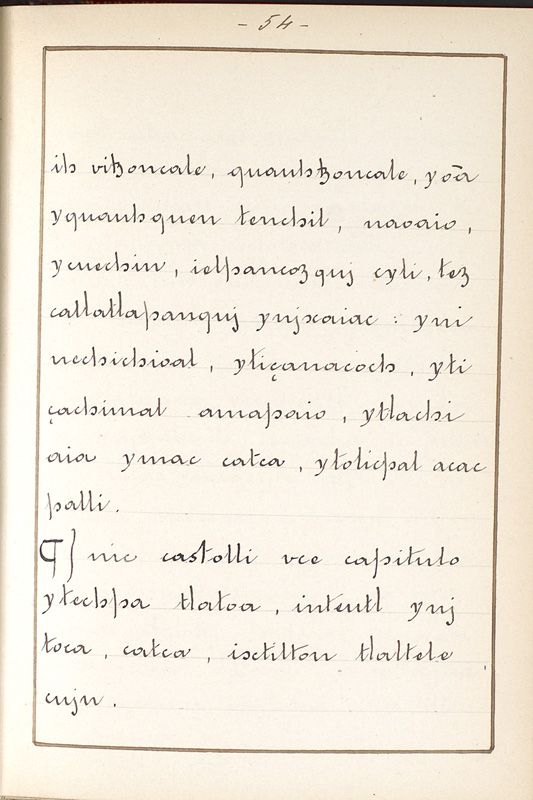 - 54 -
ih vitzoncale, quauhtzoncale, yoā
yquauhquen tenchil, navaio,
ycuechin, ielpancozquj cyli, tez
catlatlapanquj ynjxaiac : yni
nechichioal, ytiçanacoch, yti
çachimal amapaio, ytlachi
aia ymac catca, ytolicpal acac
palli.
¶ Inic castolli vce capitulo
ytechpa tlatoa, inteutl ynj
toca, catca, ixtilton tlaltete
cujn.